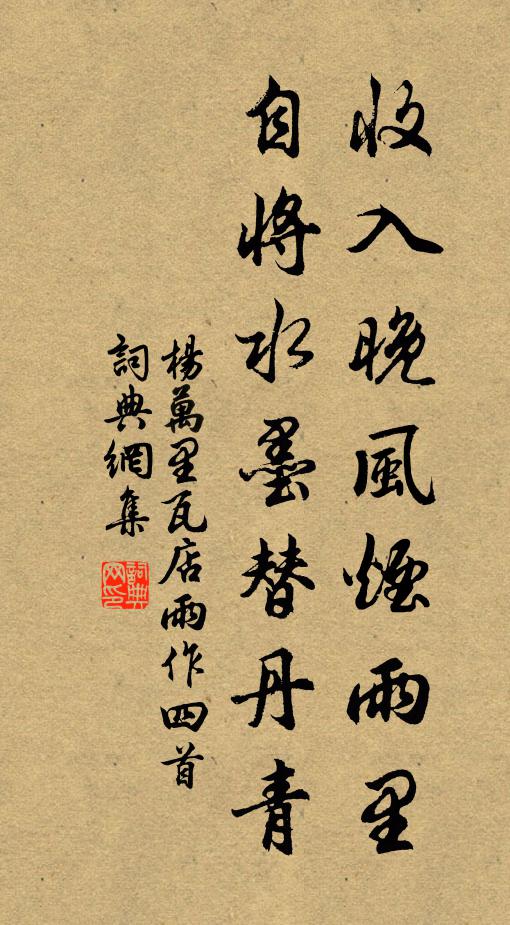 收入晚風煙雨里
自將水墨替丹青
楊萬里瓦店雨作四首
詞典網集
詞典網印